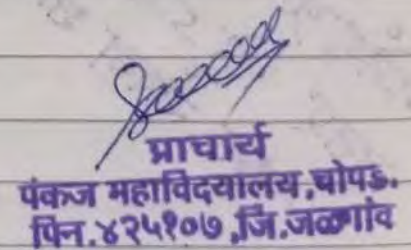 प्राचार्य
पंकज महाविदयालय,चोपडा.
पिन.४२५१०७,जि.जळगांव